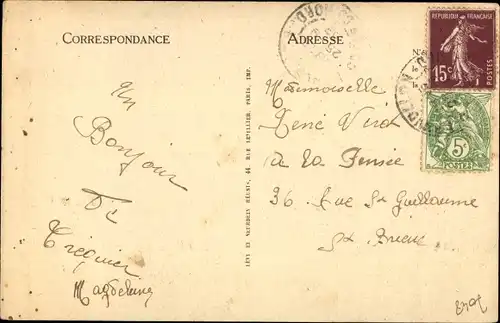 CORRESPONDANCE
ADRESSE
RÉPUBLIQUE FRANÇAISE
15c
POSTES
5c
POSTES
Un
Bonjour
De
Tréguier
Magdeleine
LÉVY ET NEURDEIN RÉUNIS, 44, RUE LETELLIER, PARIS, IMP.
Mademoiselle
René
à la Pensée
36 Rue St Guillaume
St Brieuc